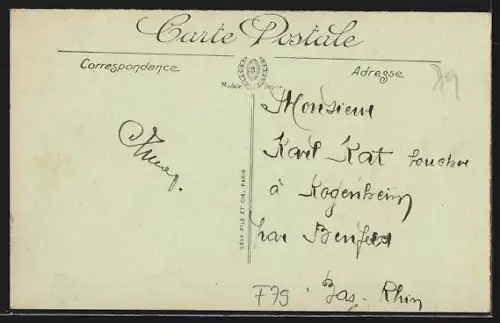 Carte Postale
Correspondance
Adresse
Modèle Déposé
Monsieur
Karl Kat
à Kogenheim
par Benfeld
Bas-Rhin
F79
LÉVY FILS ET CIE, PARIS